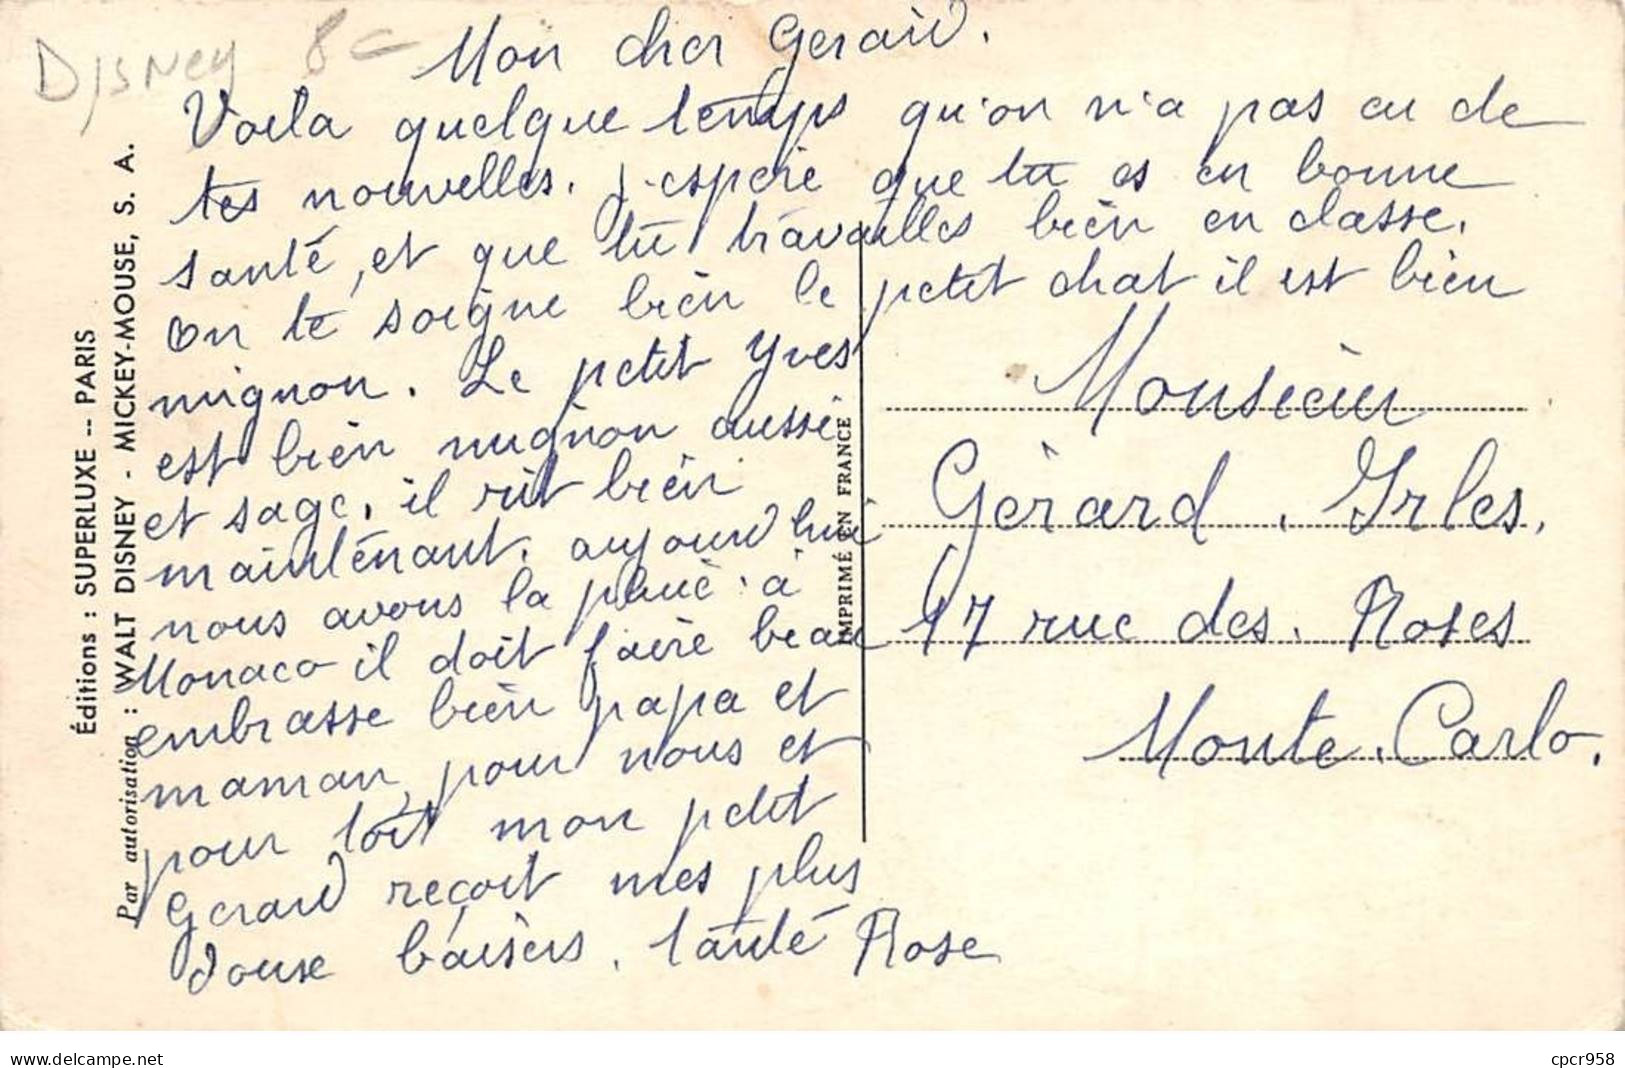 Disney 8€
Mon cher Gerard.
Voila quelque temps qu'on n'a pas eu de
tes nouvelles. J'espère que tu es en bonne
santé, et que tu travailles bien en classe.
on te soigne bien le petit chat il est bien
mignon. Le petit Yves
est bien mignon aussi
et sage, il rit bien
maintenant. aujourd hui
nous avons la pluie à
Monaco il doit faire beau
embrasse bien papa et
maman, pour nous et
pour toit mon petit
Gerard reçoit mes plus
douse baisers. tanté Rose
Monsieur
Gérard. Irles.
17 rue des. Roses
Monte. Carlo.
Éditions : SUPERLUXE -- PARIS
Par autorisation : WALT DISNEY - MICKEY-MOUSE, S. A.
IMPRIMÉ EN FRANCE
cpcr958